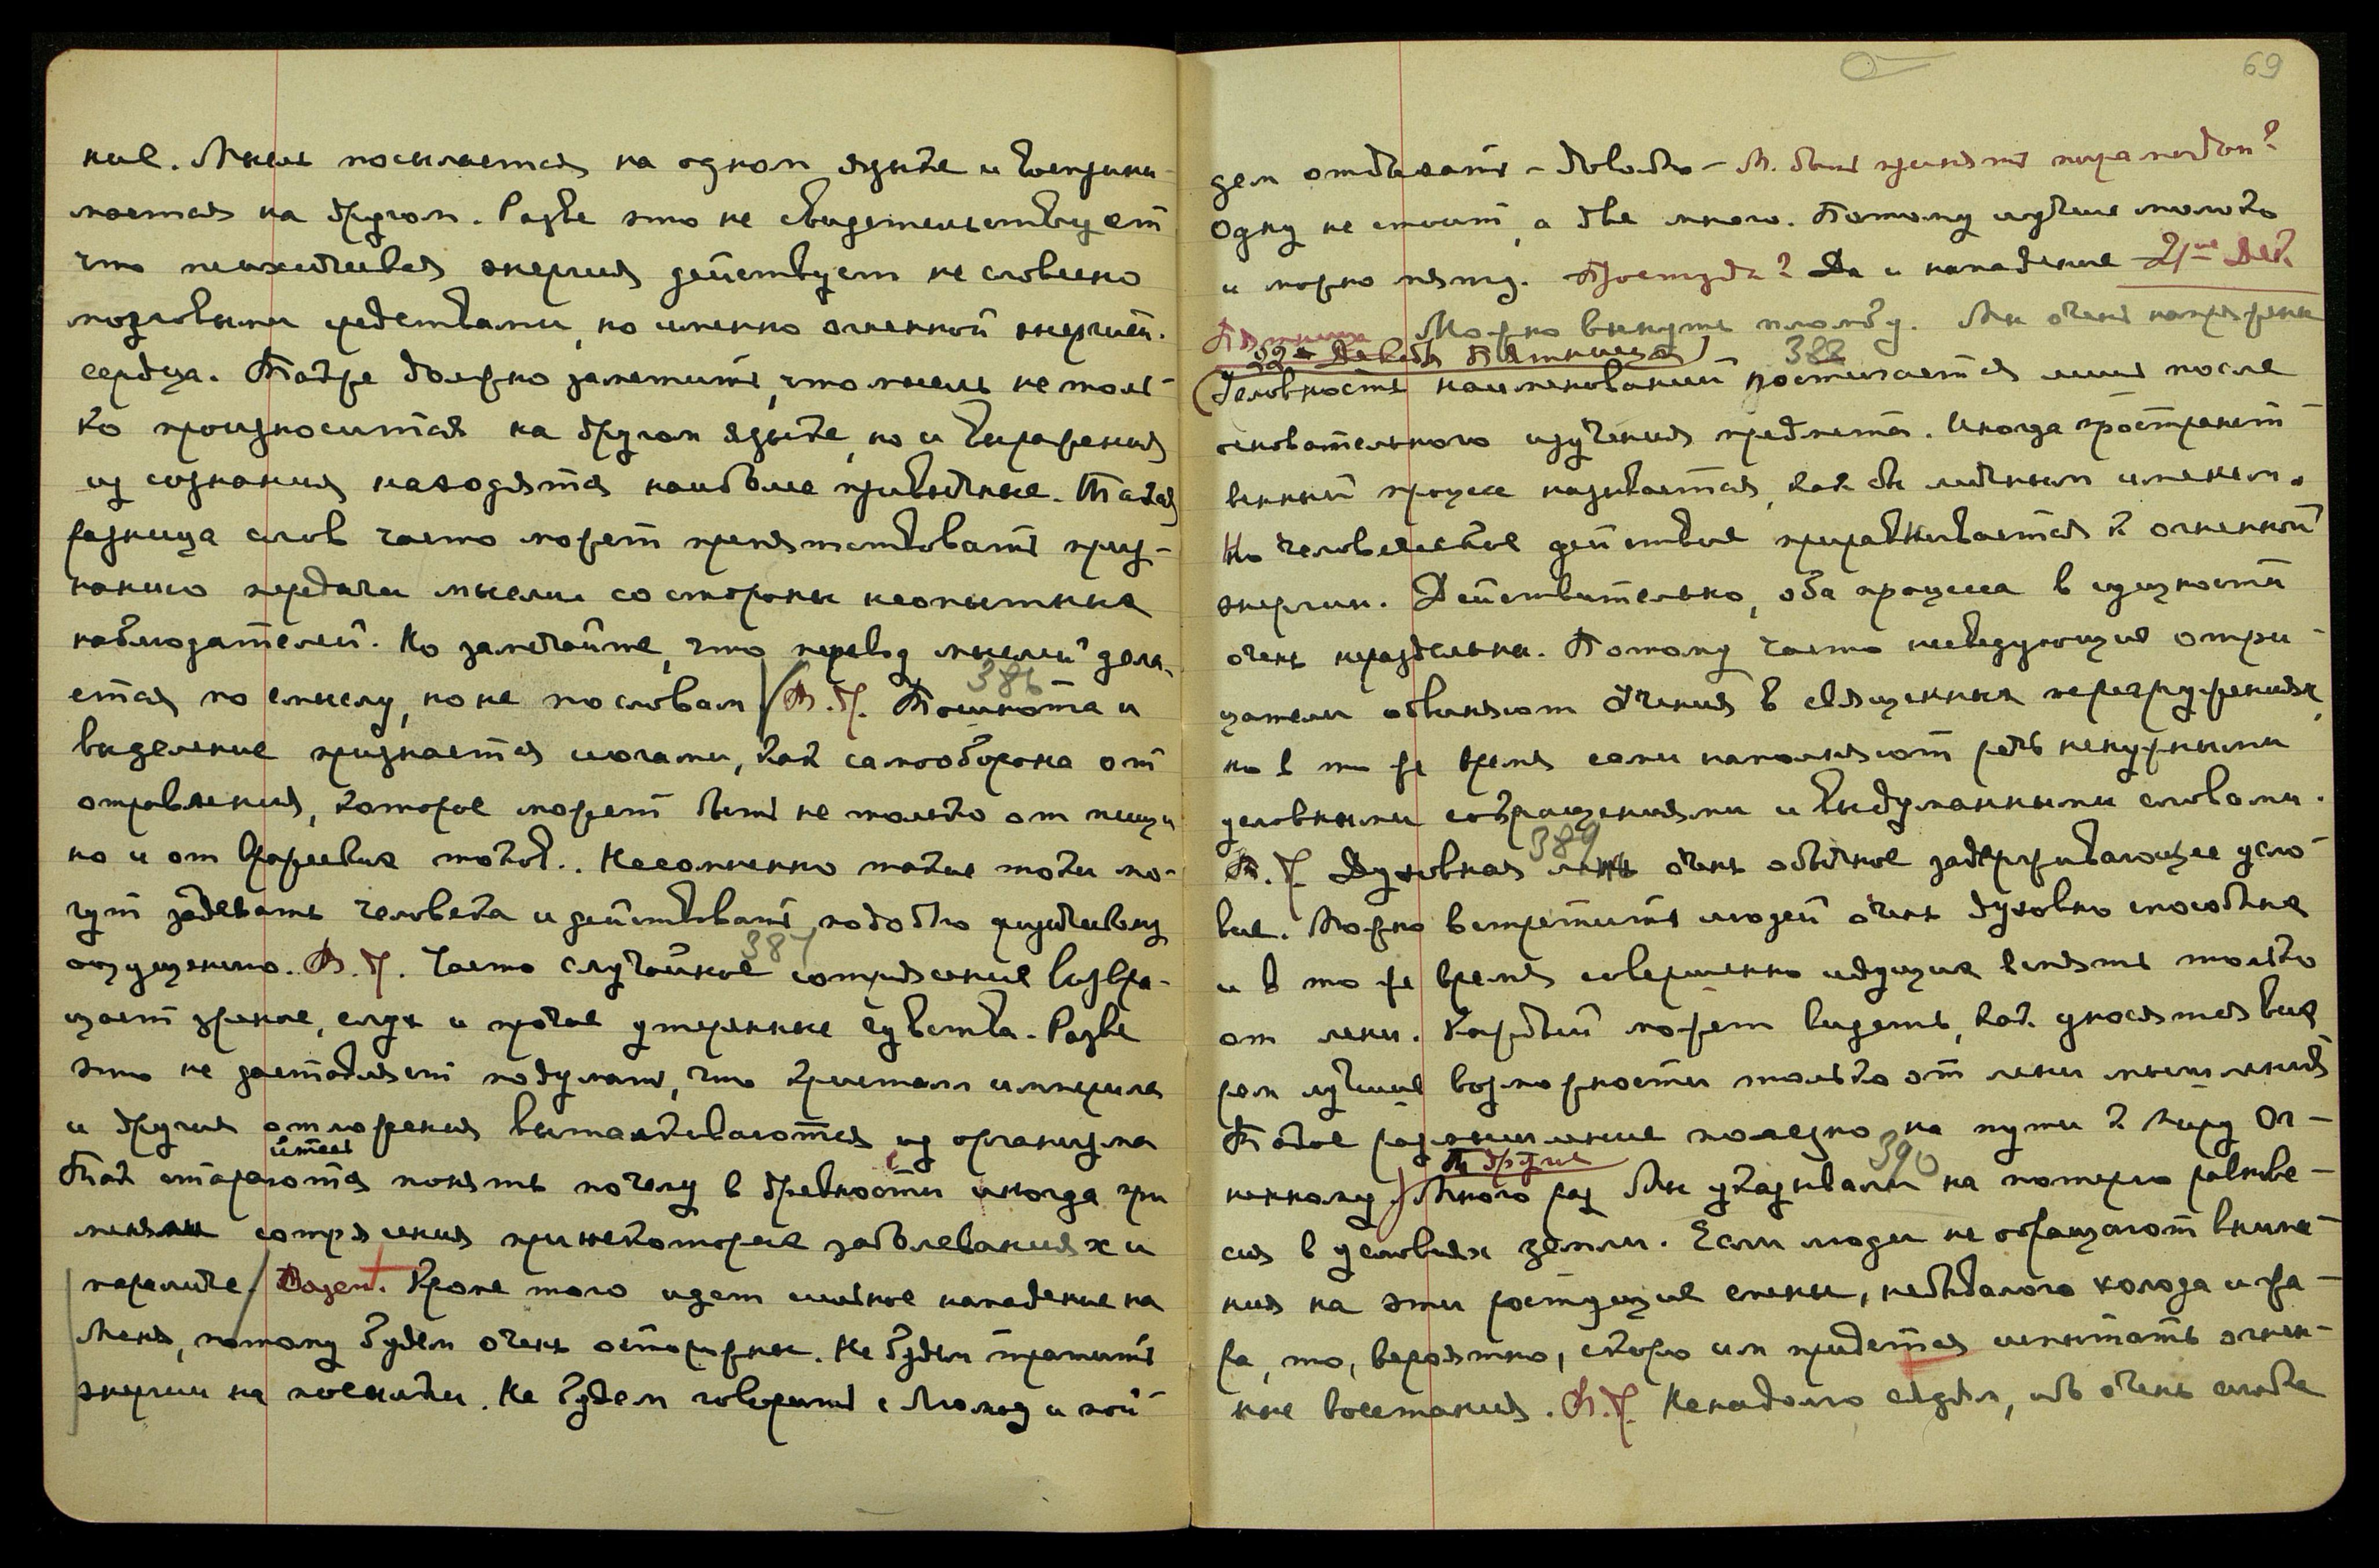 ние. Мысль посылается на одном языке и восприни-
мается на другом. Разве это не свидетельствует
что психическая энергия действует не словесно
мозговыми средствами, но именно огненной энергией.
сердца. Также должно заметить, что мысль не толь-
ко произносится на другом языке, но и выражения
из сознания находятся наиболее привычные. Такая
разница слов часто может препятствовать приз-
нанию передачи мысли со стороны неопытных
наблюдателей. Но замечайте, что перевод мыслей дела-
386
ется по смыслу, но не по словам. Т. Ч. Тошнота и
выделение признается иогами, как самооборона от
отравления, которое может быть не только от пищи
но и от вражеских токов.. Несомненно такие токи мо-
гут задевать человека и действовать подобно физическому
387
ощущению. Т. Ч. Часто случайное сотрясение возвра-
щает зрение, слух и прочие утерянные чувства. Разве
это не заставляет подумать, что кристалл империла
и другие отложения выталкиваются из организма
Так стараются понять почему в древности иногда при
меняли сотрясения при некоторых заболеваниях и
параличе. Кроме того идет сильное нападение на
Меня, потому будем очень осторожны. Не будем тратить
энергии на посылки. Не будем говорить с
69
одну не стоит, а две много. Потому лучше молоко
и можно мяту. Простуда? Да и нападение 21ое Дек
Пятница Можно вынуть пломбу. Мы очень напряжены
22 Декабря Пятница 388
(Условность наименований постигается лишь после
основательного изучения предмета. Иногда пространст-
венный процесс называется, как бы личным именем.
Но человеческое действие приравнивается к огненной
энергии. Действительно, оба процесса в сущности
очень нераздельны. Потому часто неведующие отри-
цатели обвиняют Учения в священных перегружениях,
но в то же время сами наполняют речь ненужными
условными сокращениями и выдуманными словами.
389
Т. Ч. Духовная лень очень обычное задерживающее усло-
вие. Можно встретить людей очень духовно способных
и в то же время совершенно идущих вспять только
от лени. Каждый может видеть, как уносятся вих-
рем лучшие возможности только от лени мышления
Такое размышление полезно на пути к Миру Ог-
390
Т. другие
ненному.) Много раз Мы указывали на потерю равнове-
сия в условиях земли. Если люди не обращают внима-
ния на эти растущие смены, небывалого холода и жа-
ра, то, вероятно, скоро им придется испытать огнен-
ные восстания. Т. Ч. Ненадолго сядем, ибо очень слабы